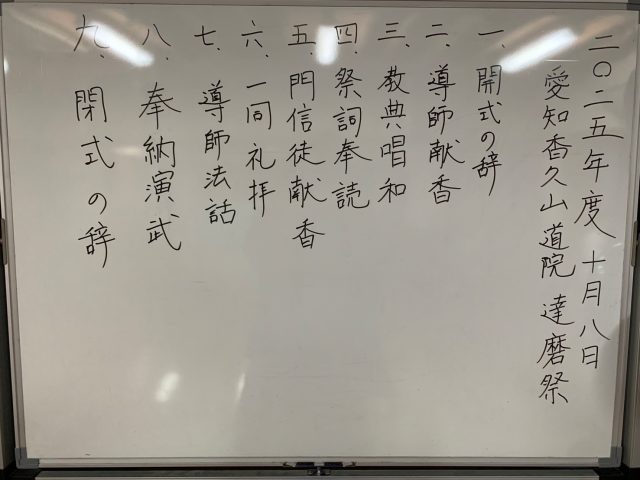 二〇二五年度 十月八日
愛知香久山道院 達磨祭
一、開式の辞
二、導師献香
三、教典唱和
四、祭詞奉読
五、門信徒献香
六、一同礼拝
七、導師法話
八、奉納演武
九、閉式の辞